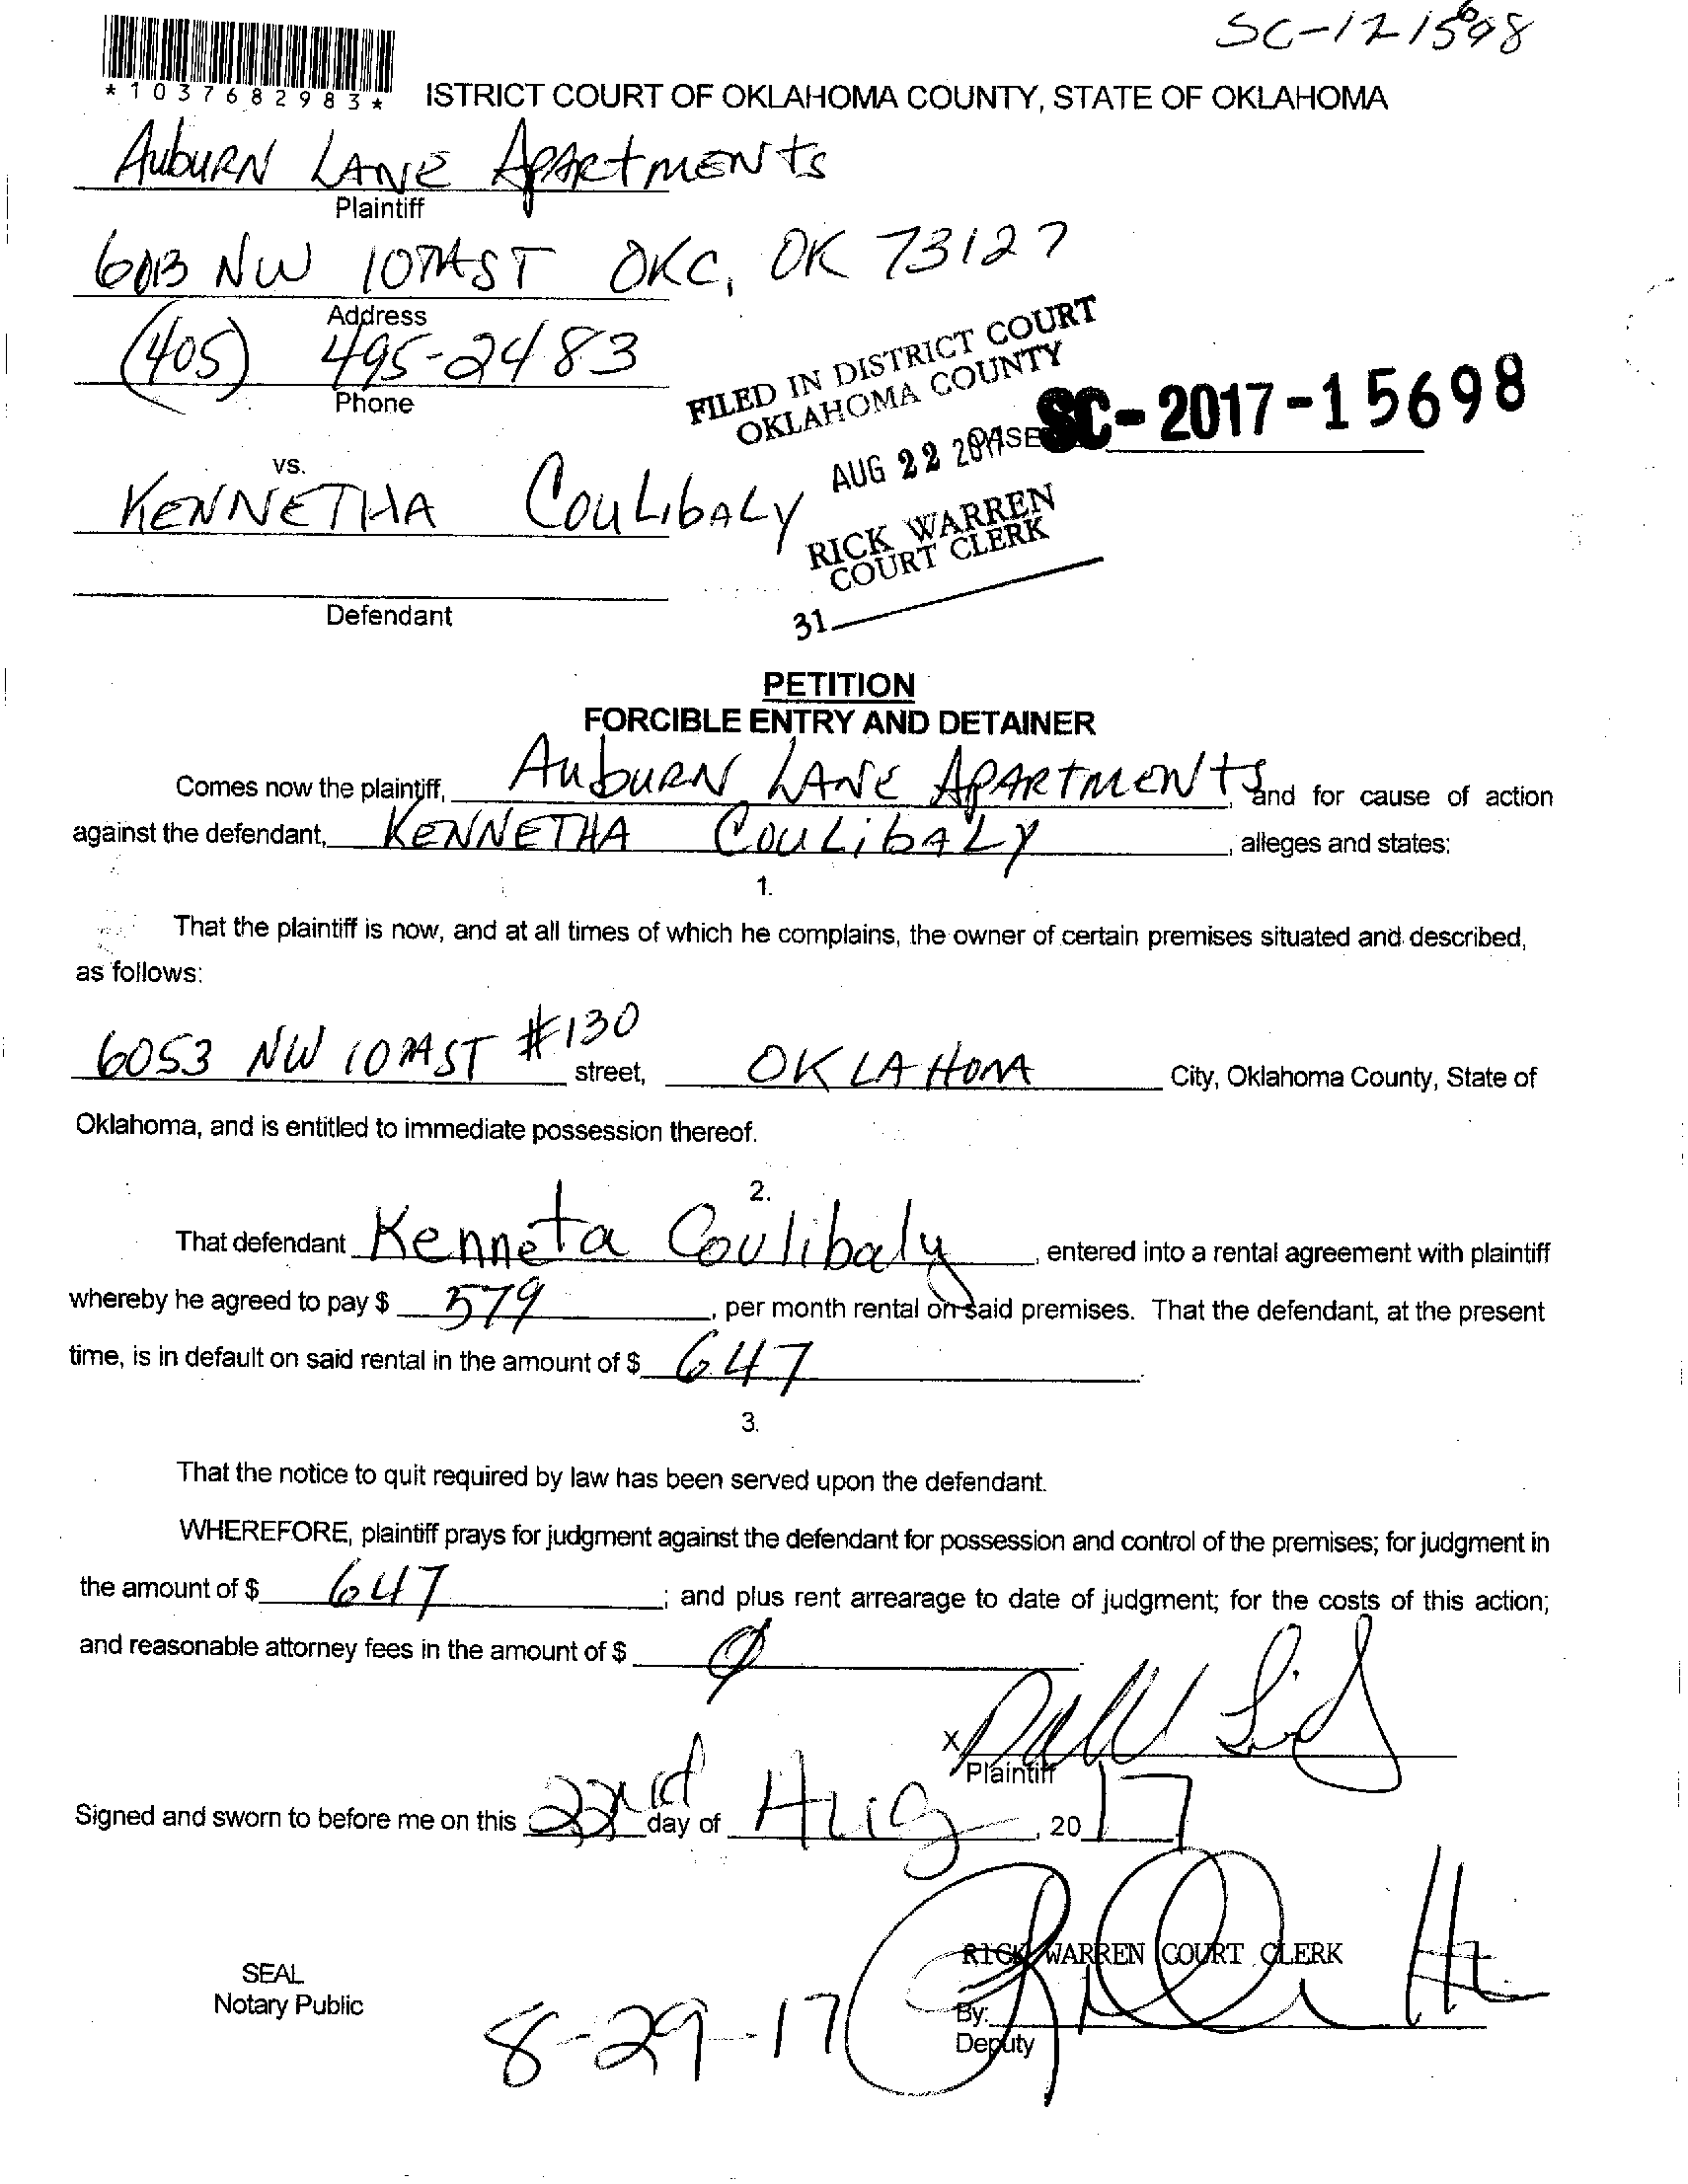 *1037682983*
ISTRICT COURT OF OKLAHOMA COUNTY, STATE OF OKLAHOMA
AubURN LANE APARtMENts
Plaintiff
NW 10TH ST OKC, OK 73127
Address
(405) 495-2483
Phone
FILED IN DISTRICT COURT
OKLAHOMA COUNTY
AUG 22 2017
SC-2017-15698
RICK WARREN
COURT CLERK
31
vs.
KENNETHA COULibALY
Defendant
PETITION
FORCIBLE ENTRY AND DETAINER
Comes now the plaintiff, AubURN LANE APARTMENTS, and for cause of action
against the defendant, KENNETHA COULibALY, alleges and states:
1.
That the plaintiff is now, and at all times of which he complains, the owner of certain premises situated and described,
as follows:
6053 NW 10TH ST #130 street, OKLAHOMA City, Oklahoma County, State of
Oklahoma, and is entitled to immediate possession thereof.
2.
That defendant Kenneta Coulibaly, entered into a rental agreement with plaintiff
whereby he agreed to pay $ 579, per month rental on said premises. That the defendant, at the present
time, is in default on said rental in the amount of $ 647.
3.
That the notice to quit required by law has been served upon the defendant.
WHEREFORE, plaintiff prays for judgment against the defendant for possession and control of the premises; for judgment in
the amount of $ 647; and plus rent arrearage to date of judgment; for the costs of this action;
and reasonable attorney fees in the amount of $ Ø.
X
Plaintiff
Signed and sworn to before me on this 22nd day of Aug, 2017
RICK WARREN COURT CLERK
SEAL
Notary Public
8-29-17
By:
Deputy